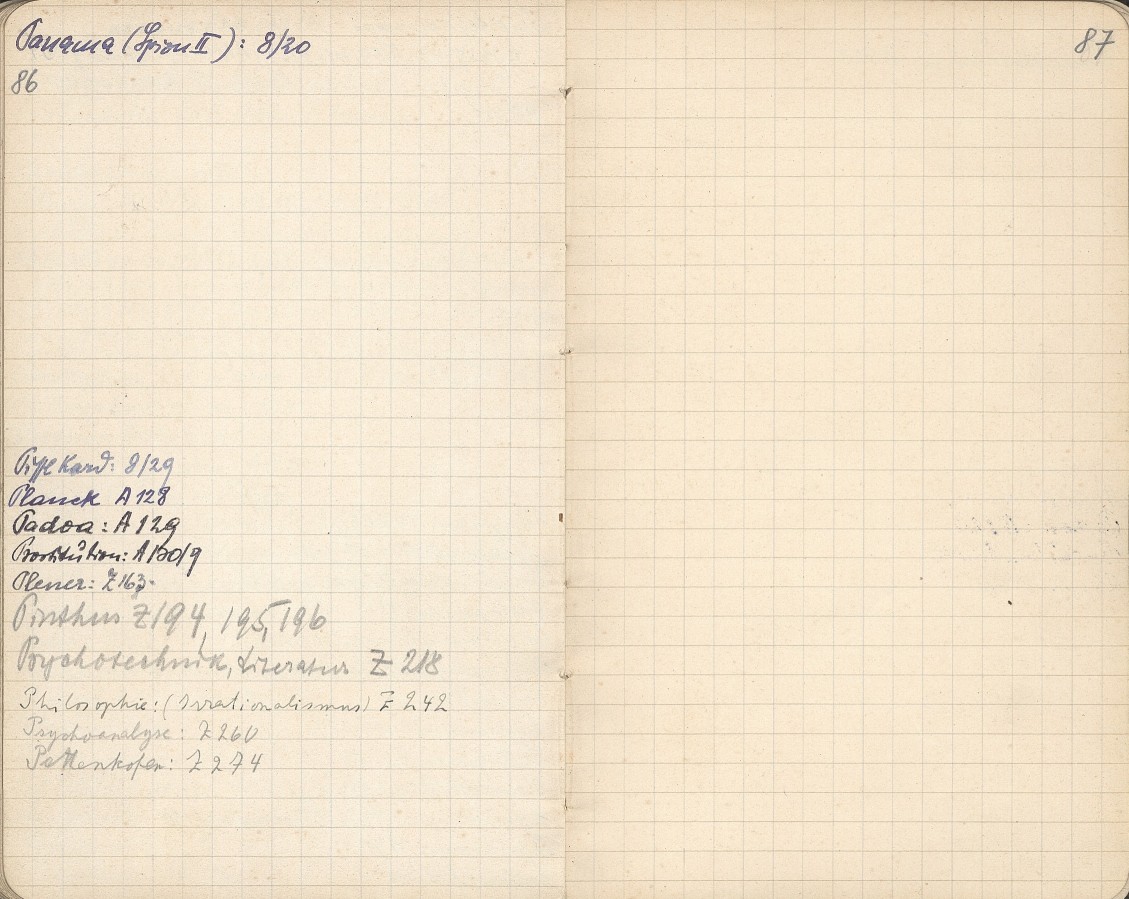 Panama (Spion II): 8/20
86
87
Piffl Kard: 8/29
Planck A 128
Padoa: A 129
Prostitution: A 130/9
Plener: Z 163
Pinthus Z 194, 195, 196
Psychotechnik, Literatur Z 218
Philosophie: (Irrationalismus) Z 242
Psychoanalyse: Z 260
Pettenkofer: Z 274